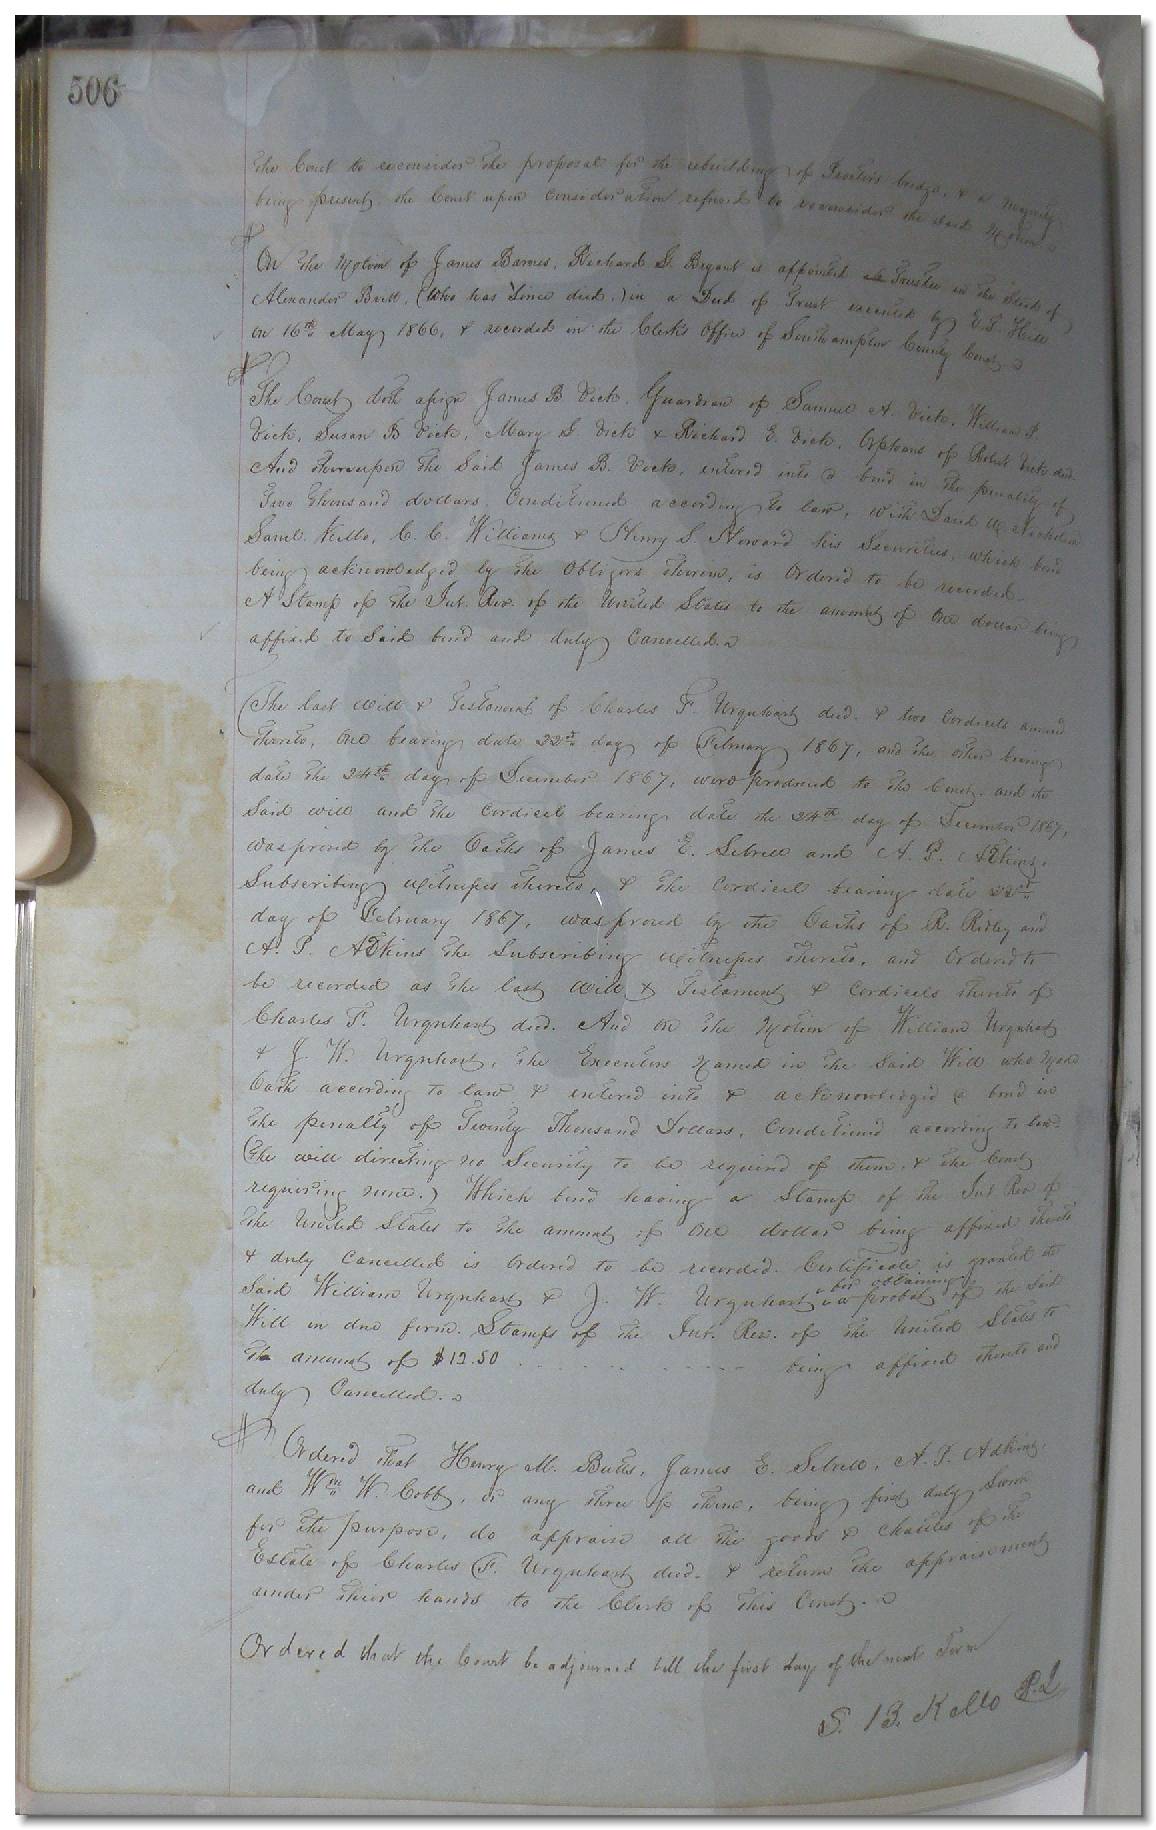 506
the Court to reconsider the proposal for the rebuilding of Proctor's bridge, & a majority
being present, the Court upon consideration refused to reconsider the said Motion
On the Motion of James Barnes, Richard G. Bryant is appointed Trustee in the Stead of
Alexander Britt, (who has Since died,) in a Deed of Trust executed by E. T. Hill
on 16th May 1866, & recorded in the Clerk's Office of Southampton County Court
The Court doth assign James B Vick, Guardian of Samuel A. Vick, William P.
Vick, Susan B Vick, Mary S Vick & Richard E. Vick, Orphans of Robt Vick decd.
And thereupon the Said James B. Vick, entered into a bond in the penalty of
Two thousand dollars, Conditioned according to law, with David M. Nicholson
Saml. Kello, C. C. Williams & Henry S. Howard his Securities, which bond
being acknowledged by the Obligors therein, is Ordered to be recorded.
A Stamp of the Int. Rev. of the United States to the amount of One dollar being
affixed to Said bond and duly Cancelled.
The last Will & Testament of Charles F. Urquhart decd. & two Cordicils annexed
thereto, One bearing date 22nd day of February 1867, and the other bearing
date the 24th day of December 1867, were produced to the Court, and the
Said will and the Cordicel bearing date the 24th day of December 1867,
was proved by the Oaths of James E. Sebrell and A. P. Adkins,
Subscribing Witnesses thereto, & the Cordicil bearing date 22nd
day of February 1867, was proved by the Oaths of R. Ridley and
A. P. Adkins the Subscribing Witnesses thereto, and Ordered to
be recorded as the last Will & Testament & Cordicels thereto of
Charles F. Urquhart decd. And On the Motion of William Urquhart
& J. W. Urquhart, the Executors Named in the Said Will who Made
Oath according to law & entered into & acknowledged a bond in
the penalty of Twenty Thousand Dollars, Conditioned according to law
(the will directing no Security to be required of them, & the Court
requiring none.) Which bond having a Stamp of the Int Rev of
the United States to the amount of One dollar being affixed thereto
& duly Cancelled is Ordered to be recorded. Certificate is granted the
Said William Urquhart & J. W. Urquhart for obtaining a probat of the Said
Will in due form. Stamps of the Int. Rev. of the United States to
the amount of $12.50 being affixed thereto and
duly Cancelled.
Ordered that Henry M. Butts, James E. Sebrell, A. P. Adkins,
and Wm W. Cobb, or any three of them, being first duly Sworn
for the purpose, do appraise all the goods & Chattles of the
Estate of Charles F. Urquhart decd. & return the appraisement
under their hands to the Clerk of this Court.
Ordered that the Court be adjourned till the first day of the next Term
S. B. Kello P.J.